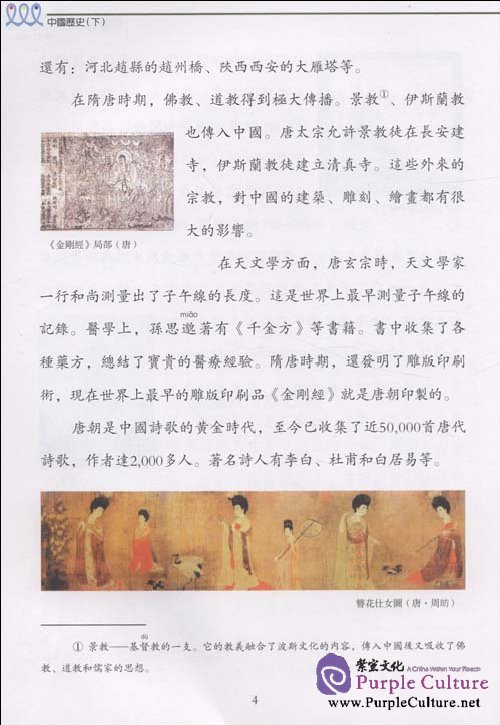 中國歷史(下)
還有：河北趙縣的趙州橋、陝西西安的大雁塔等。
在隋唐時期，佛教、道教得到極大傳播。景教①、伊斯蘭教
也傳入中國。唐太宗允許景教徒在長安建
寺，伊斯蘭教徒建立清真寺。這些外來的
宗教，對中國的建築、雕刻、繪畫都有很
大的影響。
《金剛經》局部(唐)
在天文學方面，唐玄宗時，天文學家
一行和尚測量出了子午線的長度。這是世界上最早測量子午線的
miǎo
記錄。醫學上，孫思邈著有《千金方》等書籍。書中收集了各
種藥方，總結了寶貴的醫療經驗。隋唐時期，還發明了雕版印刷
術，現在世界上最早的雕版印刷品《金剛經》就是唐朝印製的。
唐朝是中國詩歌的黃金時代，至今已收集了近50,000首唐代
詩歌，作者達2,000多人。著名詩人有李白、杜甫和白居易等。
簪花仕女圖(唐·周昉)
dū
① 景教——基督教的一支。它的教義融合了波斯文化的內容，傳入中國後又吸收了佛
教、道教和儒家的思想。
4
紫宸文化 A China Within Your Reach
Purple Culture
www.PurpleCulture.net